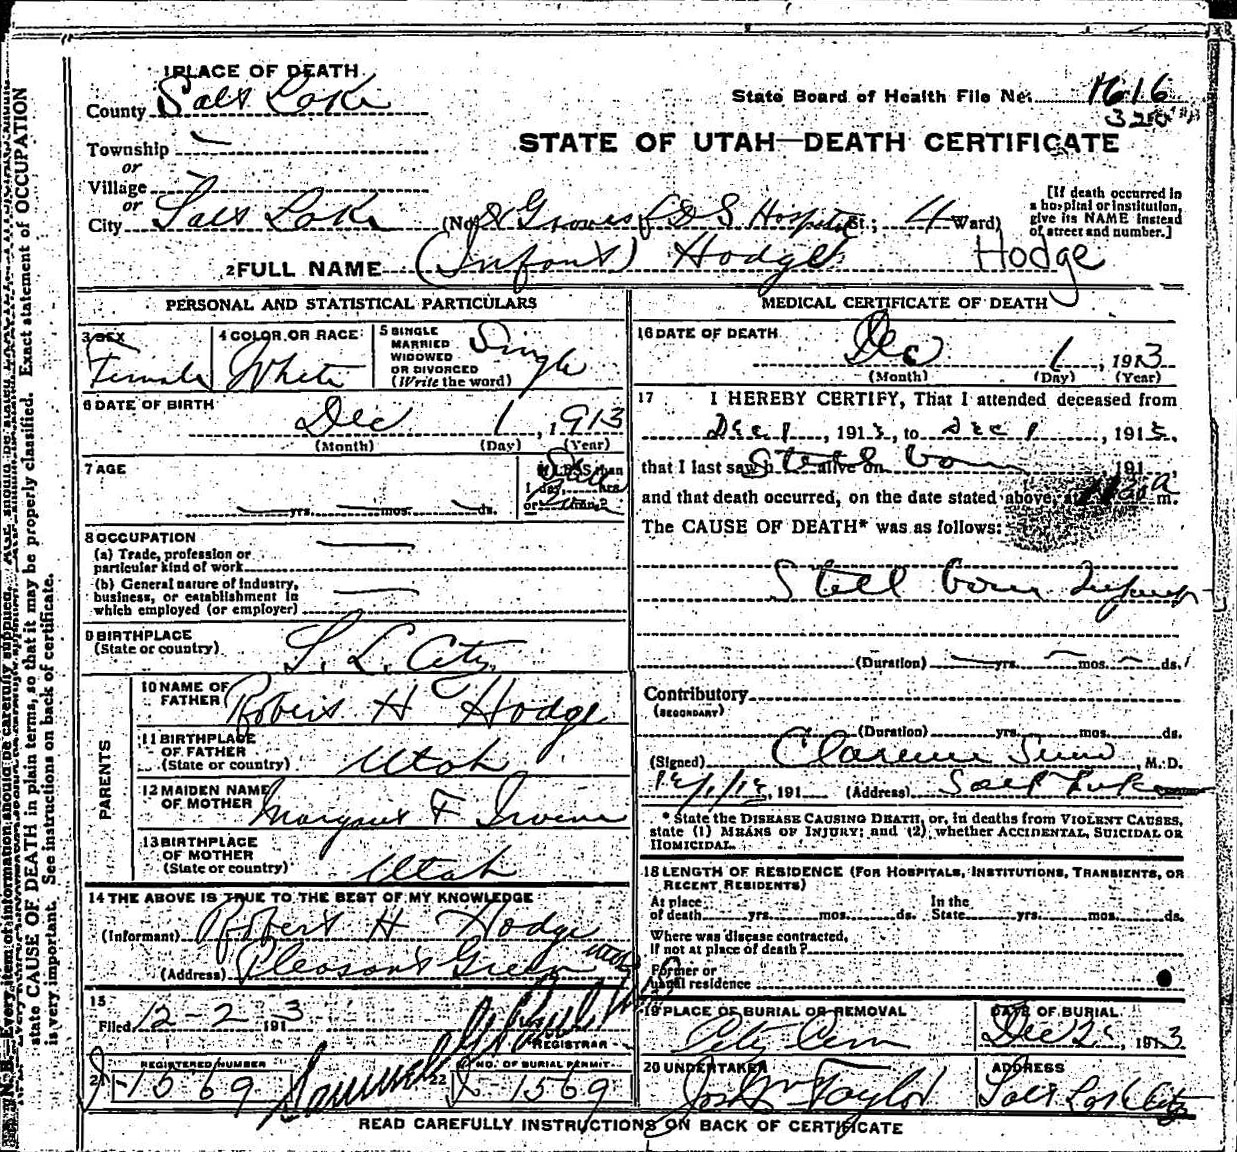 1 PLACE OF DEATH
County Salt Lake
State Board of Health File No. 1616
STATE OF UTAH—DEATH CERTIFICATE
Township
or
Village
or
City Salt Lake (No. Groves L D S Hospital St.; 4 Ward)
[If death occurred in
a hospital or institution,
give its NAME instead
of street and number.]
2 FULL NAME (Infant) Hodge Hodge
PERSONAL AND STATISTICAL PARTICULARS
3 SEX
Female
4 COLOR OR RACE
White
5 SINGLE
MARRIED
WIDOWED
OR DIVORCED
(Write the word)
Single
6 DATE OF BIRTH
Dec 1, 1913
(Month) (Day) (Year)
7 AGE
yrs. mos. ds.
If LESS than
1 day, hrs.
or min.?
8 OCCUPATION
(a) Trade, profession or
particular kind of work
(b) General nature of industry,
business, or establishment in
which employed (or employer)
9 BIRTHPLACE
(State or country)
S. L. City
PARENTS
10 NAME OF
FATHER
Robert H Hodge
11 BIRTHPLACE
OF FATHER
(State or country)
Utah
12 MAIDEN NAME
OF MOTHER
Margaret F Irvine
13 BIRTHPLACE
OF MOTHER
(State or country)
Utah
14 THE ABOVE IS TRUE TO THE BEST OF MY KNOWLEDGE
(Informant) Robert H Hodge
(Address) Pleasant Green Utah
15
Filed 12-2 1913
REGISTRAR
REGISTERED NUMBER
21 J-1569
22 NO. OF BURIAL PERMIT
J-1569
MEDICAL CERTIFICATE OF DEATH
16 DATE OF DEATH
Dec 1, 1913
(Month) (Day) (Year)
17 I HEREBY CERTIFY, That I attended deceased from
Dec 1, 1913, to Dec 1, 1913,
that I last saw h alive on Still born 191
and that death occurred, on the date stated above, at m.
The CAUSE OF DEATH* was as follows:
Still born Infant
(Duration) yrs. mos. ds.
Contributory
(SECONDARY)
(Duration) yrs. mos. ds.
(Signed) Clarence Snow, M. D.
12/1/13, 191 (Address) Salt Lake
* State the DISEASE CAUSING DEATH, or, in deaths from VIOLENT CAUSES,
state (1) MEANS OF INJURY; and (2) whether ACCIDENTAL, SUICIDAL OR
HOMICIDAL.
18 LENGTH OF RESIDENCE (FOR HOSPITALS, INSTITUTIONS, TRANSIENTS, OR
RECENT RESIDENTS)
At place
of death yrs. mos. ds.
In the
State yrs. mos. ds.
Where was disease contracted,
if not at place of death?
Former or
usual residence
19 PLACE OF BURIAL OR REMOVAL
City Cem
DATE OF BURIAL
Dec 2, 1913
20 UNDERTAKER
Jos Wm Taylor
ADDRESS
Salt Lake City
READ CAREFULLY INSTRUCTIONS ON BACK OF CERTIFICATE
N. B.—Every item of information should be carefully supplied.
state CAUSE OF DEATH in plain terms, so that it may be properly classified. Exact statement of OCCUPATION
is very important. See instructions on back of certificate.